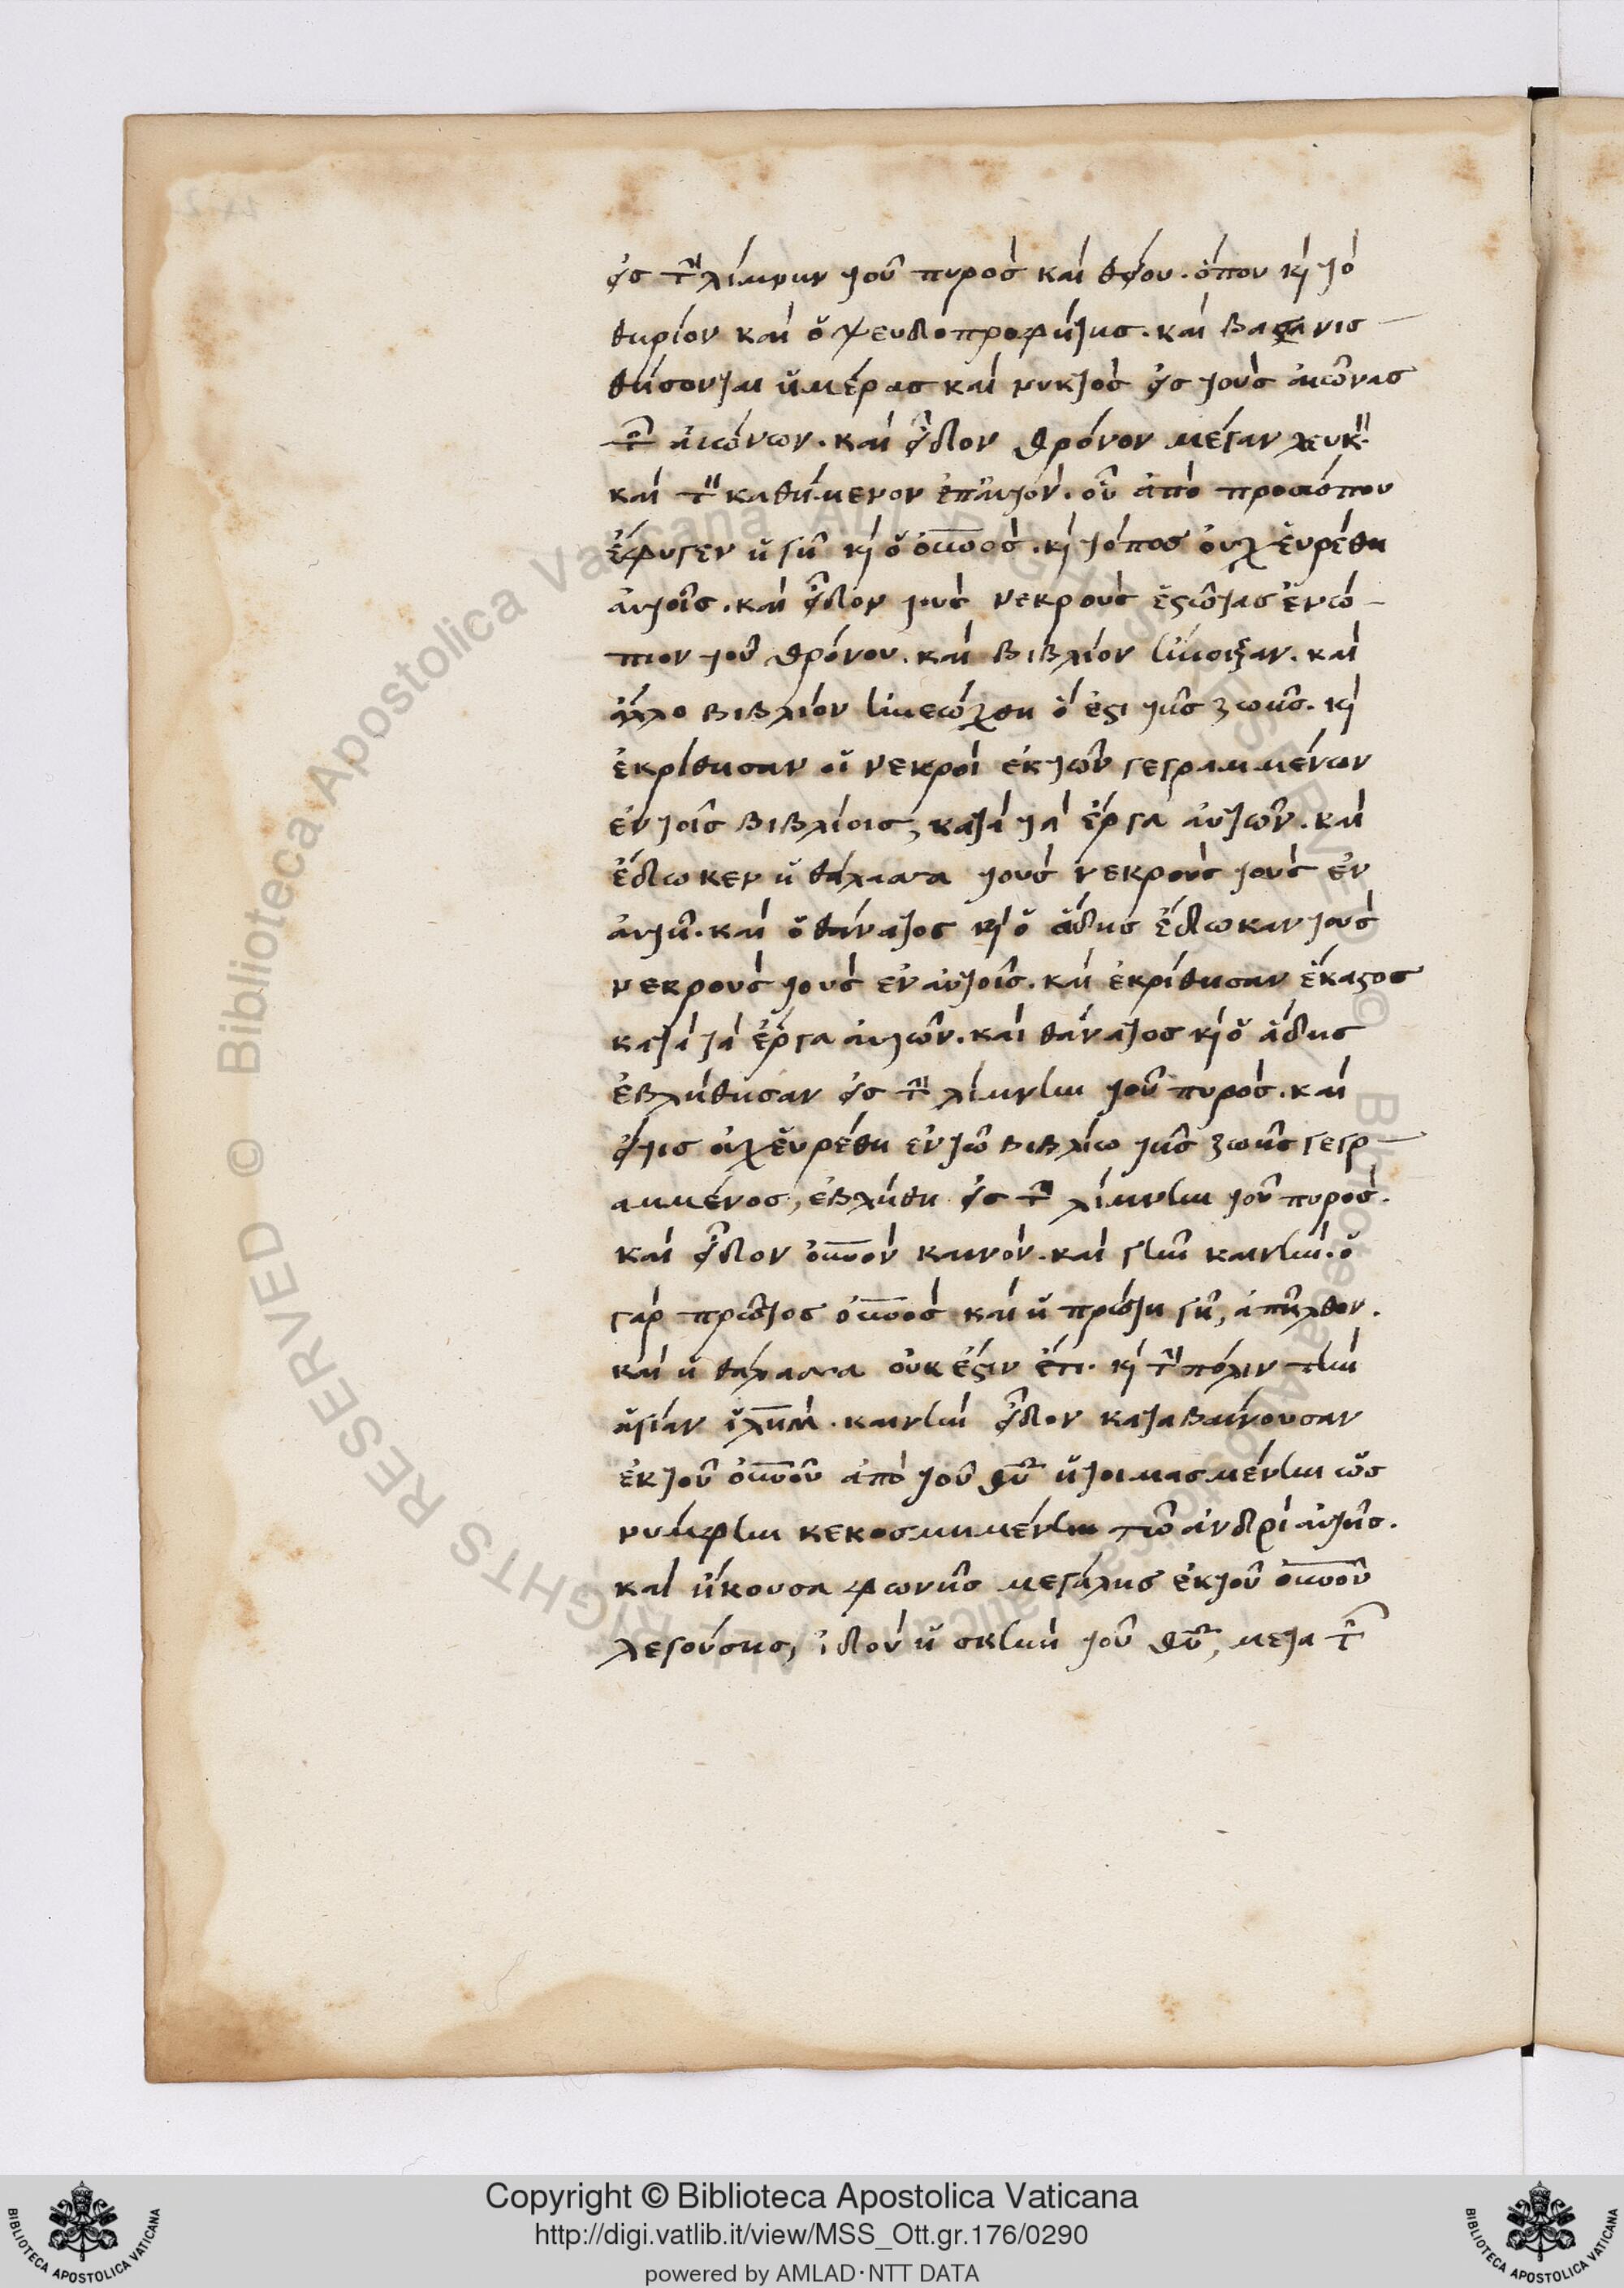 εἰς τὴν λίμνην τοῦ πυρὸς καὶ θείου. ὅπου κὶ τὸ
θηρίον καὶ ὁ ψευδοπροφήτης. καὶ βασανισ
θήσονται ἡμέρας καὶ νυκτὸς εἰς τοὺς αἰῶνας
τῶν αἰώνων. καὶ εἶδον θρόνον μέγαν λευκὸν.
καὶ τὸν καθήμενον ἐπ' αὐτόν. οὗ ἀπὸ προσώπου
ἔφυγεν ἡ γῆ κὶ ὁ οὐνοσ. κὶ τόπος οὐχ εὑρέθη
αὐτοῖς. καὶ εἶδον τοὺς νεκροὺς ἑστῶτας ἐνώ
πιον τοῦ θρόνου. καὶ βιβλίον ἤνοιξαν. καὶ
ἄλλο βιβλίον ἠνεώχθη ὅ ἐστι τῆς ζωῆς. κὶ
ἐκρίθησαν οἱ νεκροὶ ἐκ τῶν γεγραμμένων
ἐν τοῖς βιβλίοις, κατὰ τὰ ἔργα αὐτῶν. καὶ
ἔδωκεν ἡ θάλασσα τοὺς νεκροὺς τοὺς ἐν
αὐτῇ. καὶ ὁ θάνατος κὶ ὁ ἅδης ἔδωκαν τοὺς
νεκροὺς τοὺς ἐν αὐτοῖς. καὶ ἐκρίθησαν ἕκαστος
κατὰ τὰ ἔργα αὐτῶν. καὶ θάνατος κὶ ὁ ἅδης
ἐβλήθησαν εἰς τὴν λίμνην τοῦ πυρός. καὶ
εἴ τις οὐχ εὑρέθη ἐν τῷ βιβλίῳ τῆς ζωῆς γεγρ
αμμένος, ἐβλήθη εἰς τὴν λίμνην τοῦ πυρός.
καὶ εἶδον οὐνον καινὸν. καὶ γῆν καινήν. ὁ
γὰρ πρῶτος οὐνοσ καὶ ἡ πρώτη γῆ, ἀπῆλθον.
καὶ ἡ θάλασσα οὐκ ἔστιν ἔτι. κὶ τὴν πόλιν τὴν
ἁγίαν ἱλημ. καινὴν εἶδον καταβαίνουσαν
ἐκ τοῦ οὐνου ἀπὸ τοῦ θυ ἡτοιμασμένην ὡς
νύμφην κεκοσμημένην τῷ ἀνδρὶ αὐτῆς.
καὶ ἤκουσα φωνῆς μεγάλης ἐκ τοῦ οὐνου
λεγούσης, ἰδοὺ ἡ σκηνὴ τοῦ θυ, μετα τῶν
Copyright © Biblioteca Apostolica Vaticana
http://digi.vatlib.it/view/MSS_Ott.gr.176/0290
powered by AMLAD·NTT DATA